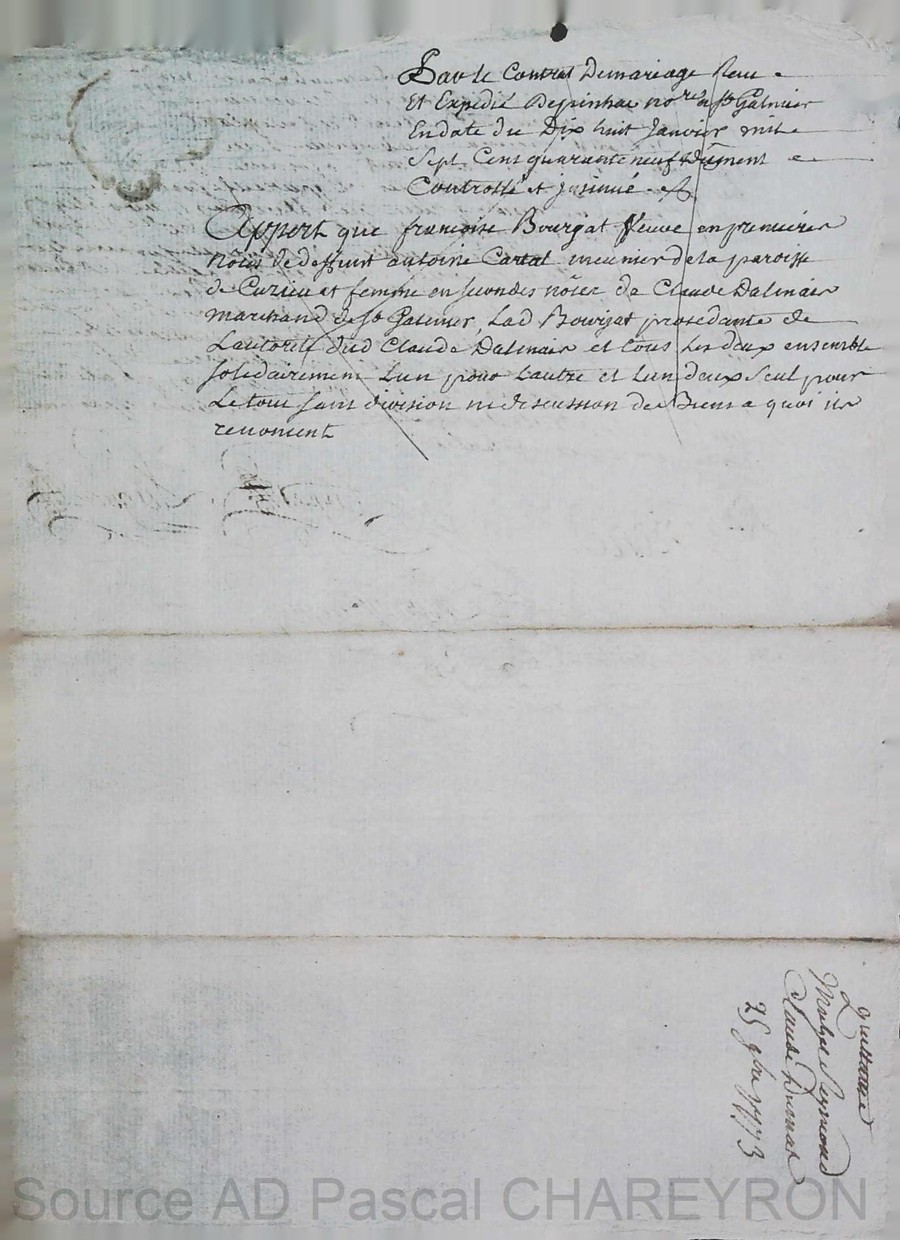 Par le Contrat Demariage Recu
Et Expedié Depinhac no.re a st Galmier
En date du Dix huit Janvier mil
Sept Cent quarante neuf Düment
Controllé et jnsinué
Appert que francoise Bourgat Veuve en premieres
nôces de deffunt antoine Cartal meunier de la paroisse
de Cuzieu et femme en secondes nôces de Claude Dalmais
marchand de st Galmier, Lad Bourgat procedante de
L'autorité dud Claude Dalmais et tous les deux ensemble
solidairement L'un pour L'autre et L'un deux seul pour
Le tout sans division ni discussion de Biens a quoi ils
renoncent
quittance
Claude
25 9bre 1773
Source AD Pascal CHAREYRON